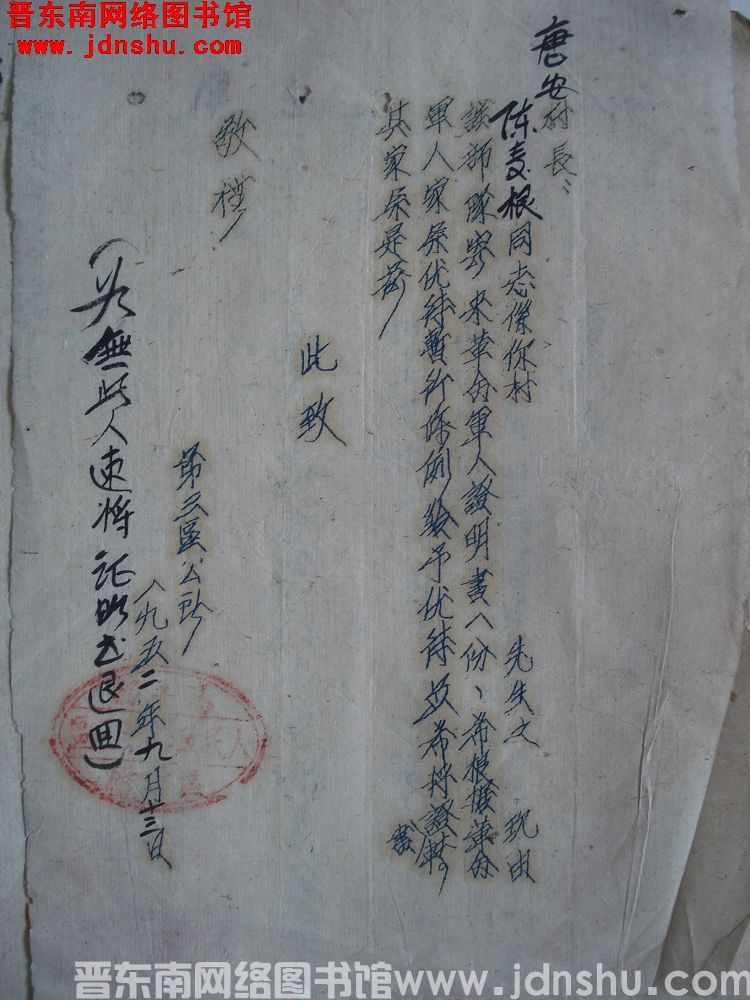 晋东南网络图书馆
www.jdnshu.com
唐安村長：
陈麦根同志係你村 先生之 现由
該部隊寄来革命軍人證明書一份、希根據革命
軍人家屬优待暫行條例給予优待並希将證書轉
其家屬是荷
此致
敬礼
第三區公所
一九五二年九月十三日
（若無此人速将证明书退回）
晋东南网络图书馆www.jdnshu.com